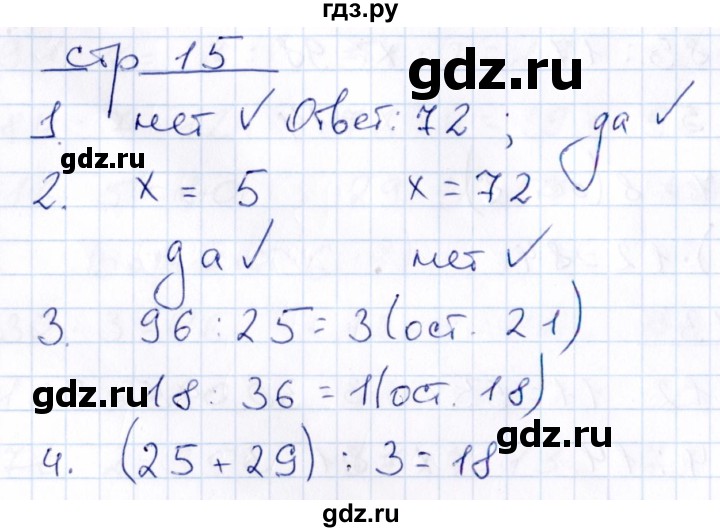 гдз.ру
стр 15
gdz.ru
1. нет ✓ Ответ: 72 ; да ✓
gdz.ru
2. x = 5 x = 72
да ✓ нет ✓
3. 96 : 25 = 3 (ост. 21)
gdz.ru
18 : 36 = 1 (ост. 18)
gdz.ru
4. (25 + 29) : 3 = 18